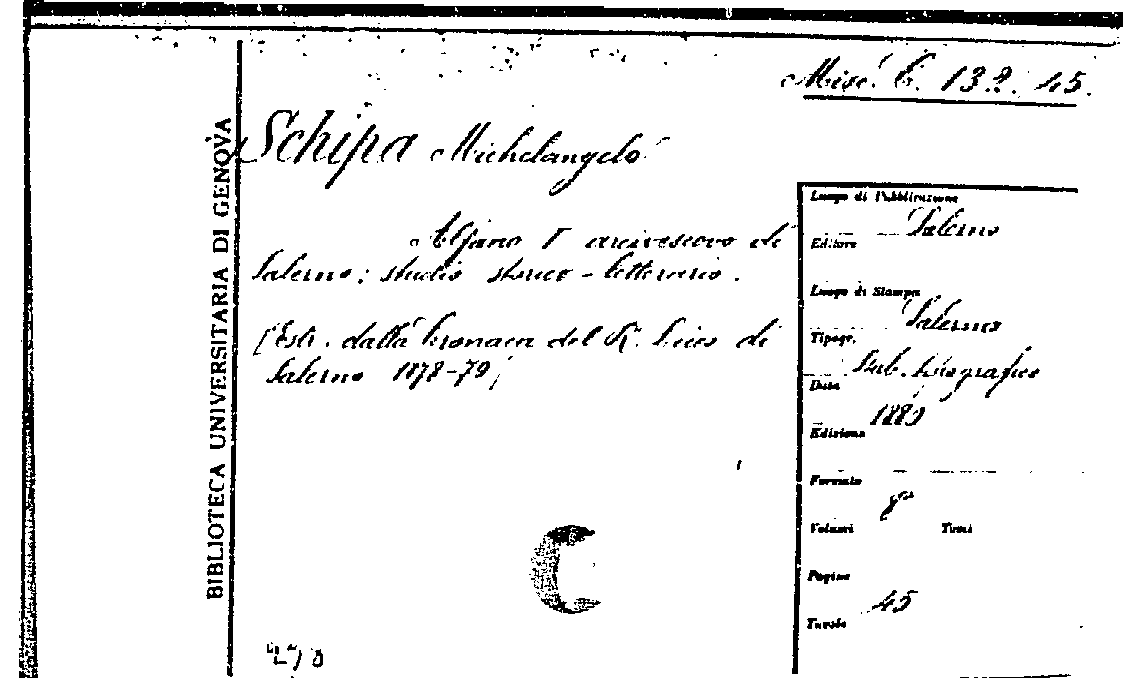 Misc. C. 132. 45.
BIBLIOTECA UNIVERSITARIA DI GENOVA
Schipa Michelangelo
Alfano I arcivescovo di
Salerno: studio storico-letterario.
(Estr. dalla Cronaca del R. Liceo di
Salerno 1878-79)
Luogo di Pubblicazione
Salerno
Editore
Luogo di Stampa
Salerno
Tipogr.
Stab. tipografico
Data
1880
Edizione
Formato
8°
Volumi Tomi
Pagine
45
Tavole